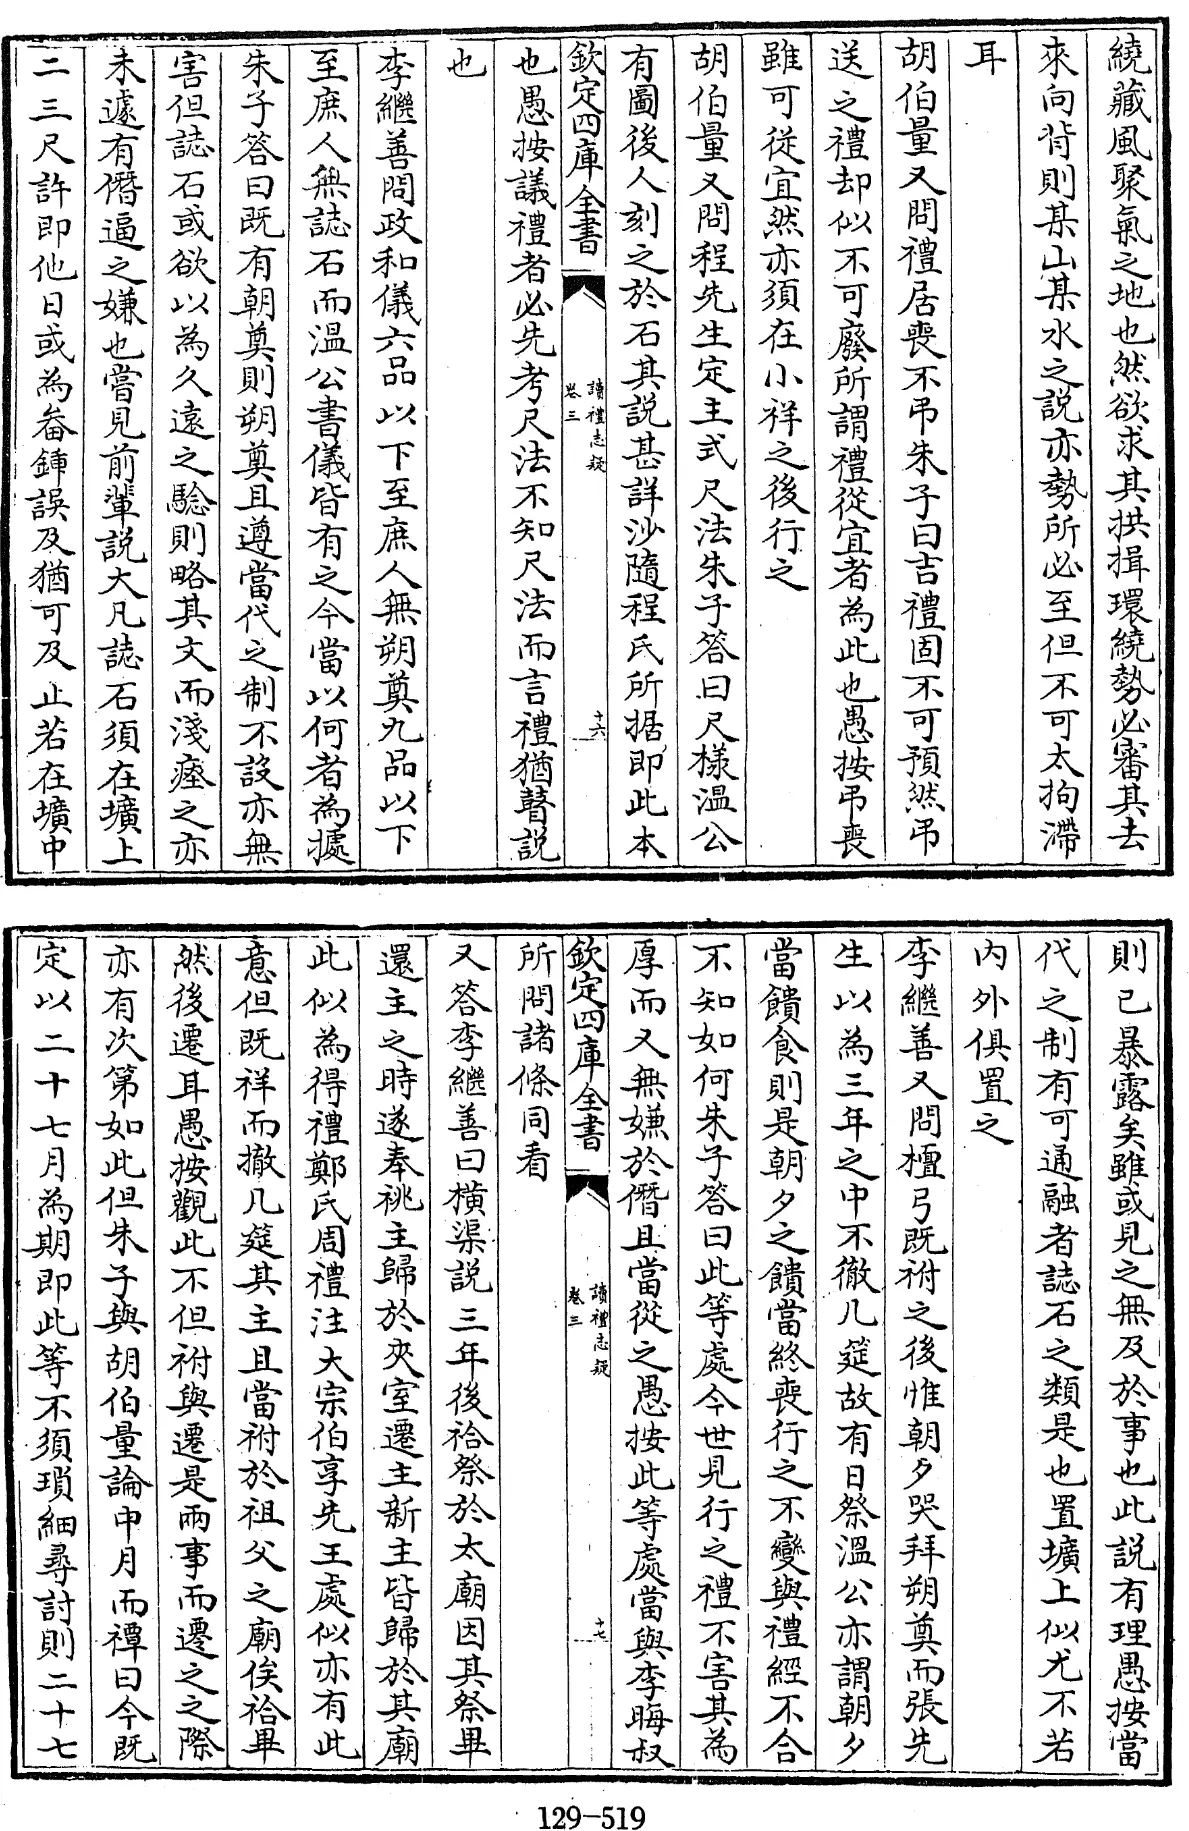 繞藏風聚氣之地也然欲求其拱揖環繞勢必審其去
來向背則某山某水之説亦勢所必至但不可太拘滯
耳
胡伯量又問禮居喪不弔朱子曰吉禮固不可預然弔
送之禮却似不可廢所謂禮從宜者為此也愚按弔喪
雖可從宜然亦須在小祥之後行之
胡伯量又問程先生定主式尺法朱子答曰尺樣溫公
有圖後人刻之於石其説甚詳沙隨程氏所据即此本
欽定四庫全書
讀禮志疑
卷三
十六
也愚按議禮者必先考尺法不知尺法而言禮猶瞽説
也
李繼善問政和儀六品以下至庶人無朔奠九品以下
至庶人無誌石而溫公書儀皆有之今當以何者為據
朱子答曰既有朝奠則朔奠且遵當代之制不設亦無
害但誌石或欲以為久遠之驗則略其文而淺瘞之亦
未遽有僭逼之嫌也嘗見前輩説大凡誌石須在壙上
二三尺許即他日或為畚鍤誤及猶可及止若在壙中
則已暴露矣雖或見之無及於事也此説有理愚按當
代之制有可通融者誌石之類是也置壙上似尤不若
内外俱置之
李繼善又問檀弓既祔之後惟朝夕哭拜朔奠而張先
生以為三年之中不徹几筵故有日祭溫公亦謂朝夕
當饋食則是朝夕之饋當終喪行之不變與禮經不合
不知如何朱子答曰此等處今世見行之禮不害其為
厚而又無嫌於僭且當從之愚按此等處當與李晦叔
欽定四庫全書
讀禮志疑
卷三
十七
所問諸條同看
又答李繼善曰橫渠説三年後祫祭於太廟因其祭畢
還主之時遂奉祧主歸於夾室遷主新主皆歸於其廟
此似為得禮鄭氏周禮注大宗伯享先王處似亦有此
意但既祥而撤几筵其主且當祔於祖父之廟俟祫畢
然後遷耳愚按觀此不但祔與遷是兩事而遷之之際
亦有次第如此但朱子與胡伯量論中月而禫曰今既
定以二十七月為期即此等不須瑣細尋討則二十七
129-519